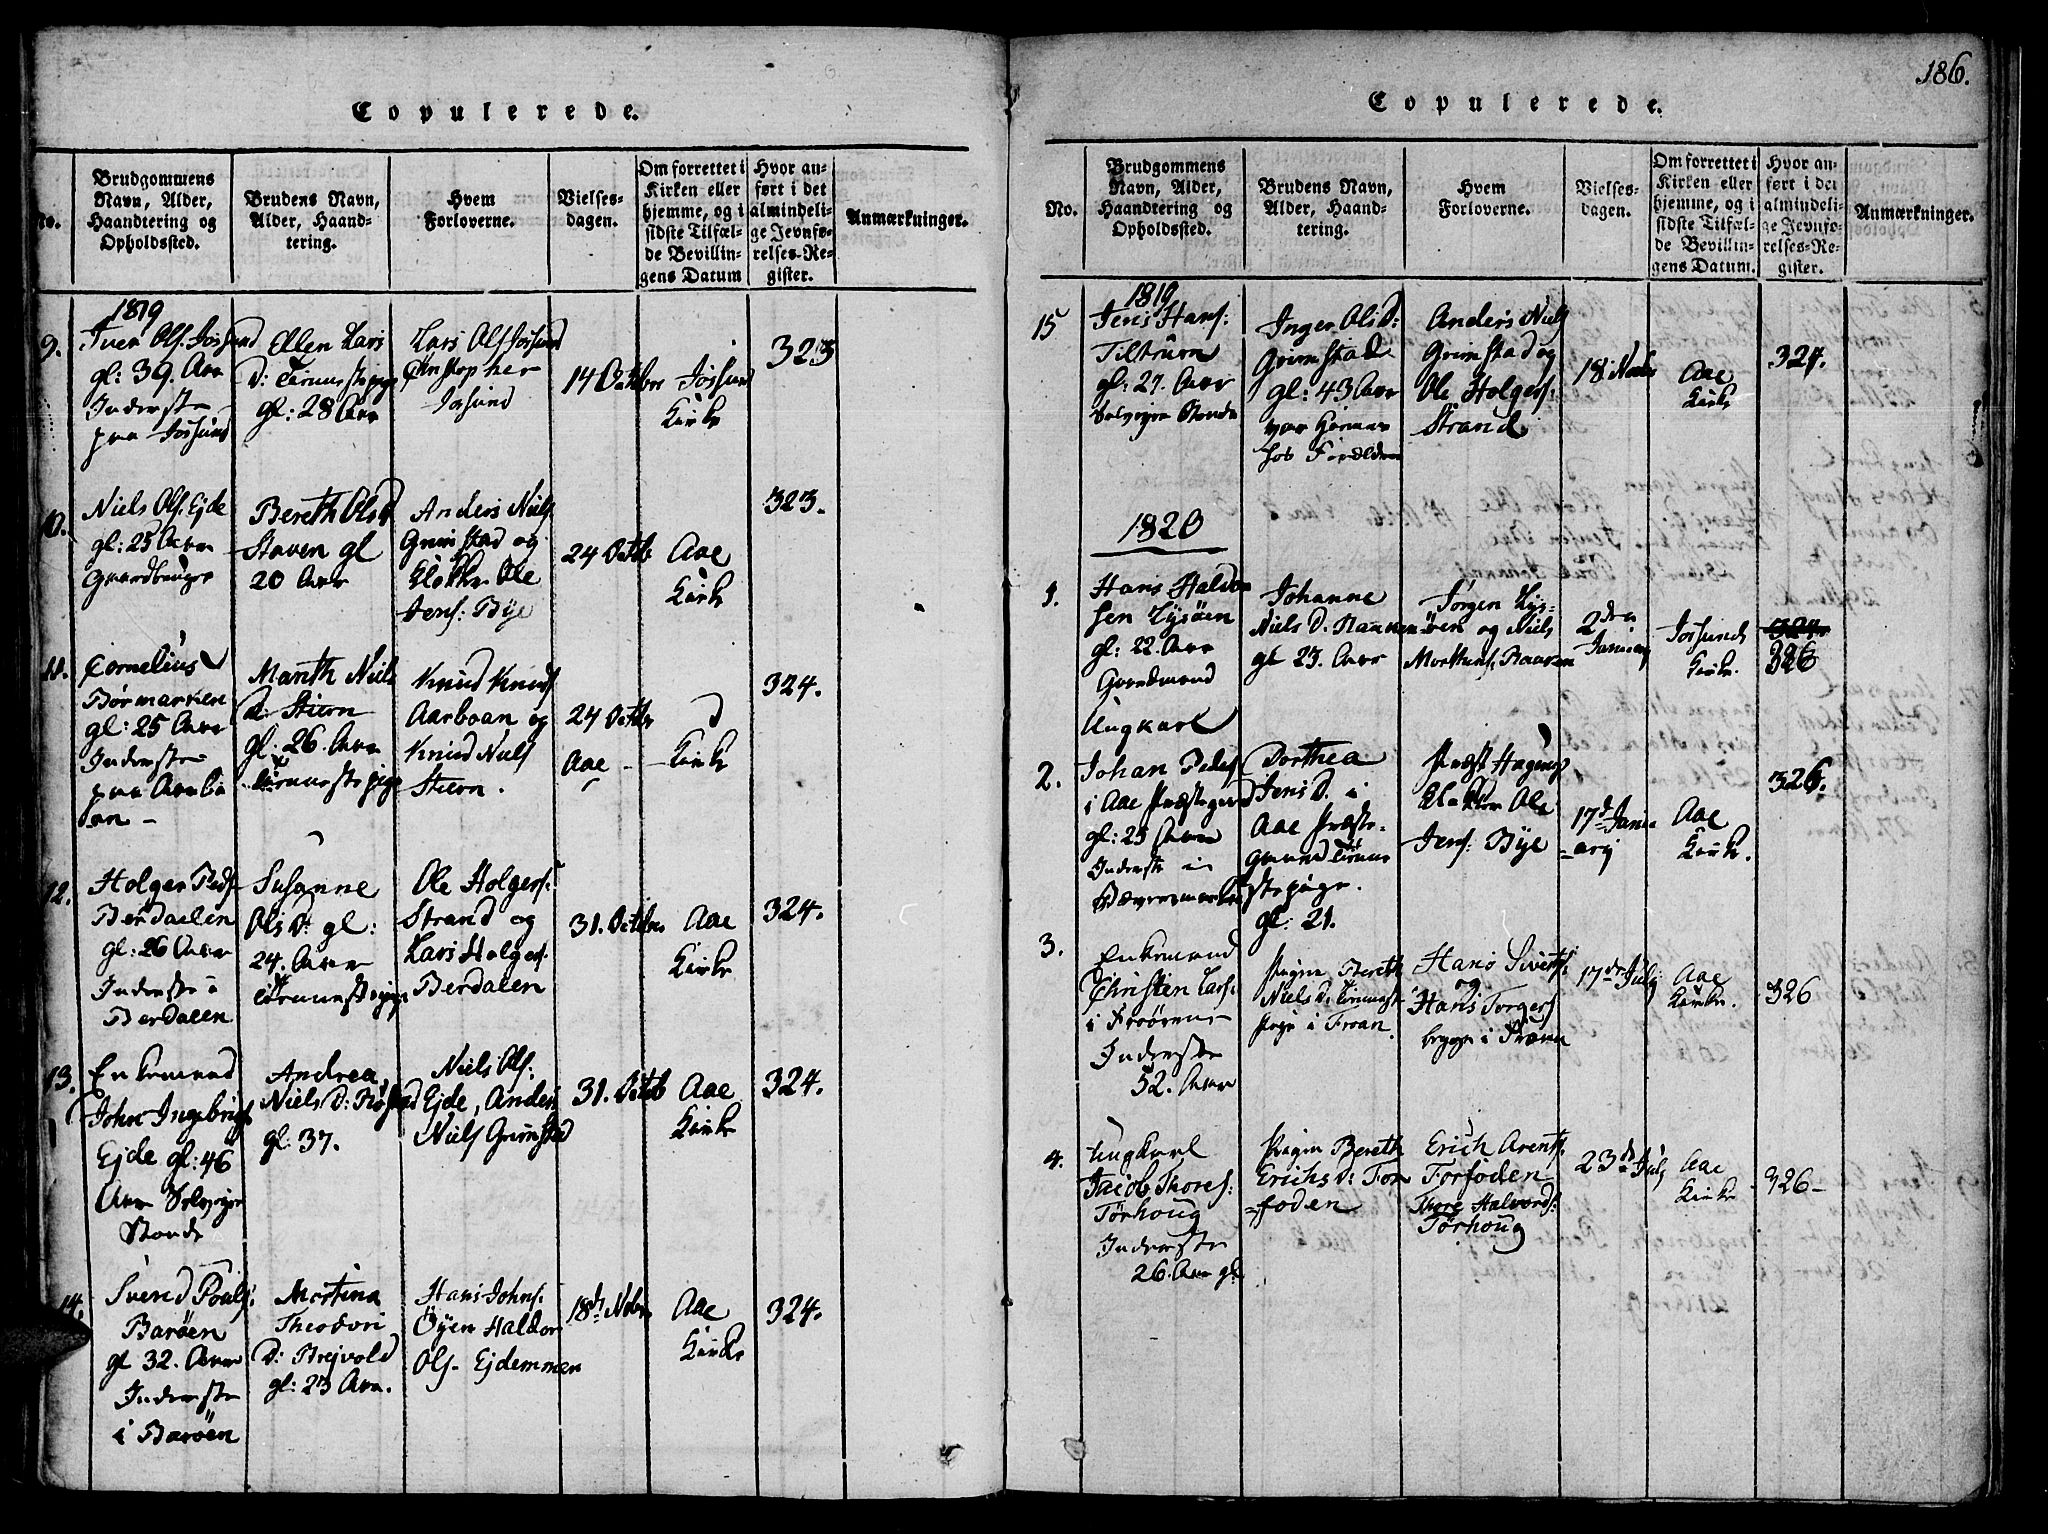 Copulerede.
No.
Brudgommens
Navn, Alder,
Haandtering og
Opholdssted.
Brudens Navn,
Alder, Haand-
tering.
Hvem
Forloverne.
Vielses-
dagen.
Om forrettet i
Kirken eller
hjemme, og i
sidste Tilfæl-
de Bevillin-
gens Datum
Hvor an-
ført i det
almindeli-
ge Jevnfø-
relses-Re-
gister.
Anmærkninger.
1819
9.
Iver Ols. Jossund
gl: 39. Aar
Inderste
paa Jossund
Ellen Lars
D: Tienestepige
gl: 28 Aar
Lars Ols Jossund
Christopher
Josund
14 October
Jossund
Kirke
323
10.
Niels Ols. Ejde
gl: 25 Aar
Gaardbruger
Bereth Ols D
Staven gl
20 Aar
Anders Niels
Grimstad og
Klokker Ole
Jens: Bye
24 Octbr
Aae
Kirke
323.
11.
Cornelius
Børmarken
gl: 25 Aar
Inderste
paa Aarbo
an -
Marith Niels
D: Stiern
gl: 26. Aar
Tienestepige
Knud Knuds
Aarboan og
Knud Niels
Stiern.
24 Octbr
Aae -
Kirke
324.
12.
Holger Peds
Berdalen
gl: 26 Aar
Inderste i
Berdalen
Susanne
Ols D: gl:
24. Aar
Tienestepige
Ole Holgers:
Strand og
Lars Holgers.
Berdalen
31. Octbr
Aae
Kirke
324.
13.
Enkemand
John Ingebrigs
Ejde gl: 46
Aar Selvejer
Bonde
Andrea
Niels D:
gl: 37.
Niels Ols:
Ejde, Anders
Niels Grimstad
31. Octb
Aae
Kirke
324.
14.
Svend Pouls:
Barøen
gl 32. Aar
Inderste
i Barøen
Martina
Theodori
D: Brejvold
gl: 23 Aar.
Hans Johns:
Öyen Haldor
Ols. Ejdemmen
18de Nobr
Aae
Kirke
324.
186.
Copulerede.
No.
Brudgommens
Navn, Alder,
Haandtering og
Opholdssted.
Brudens Navn,
Alder, Haand-
tering.
Hvem
Forloverne.
Vielses-
dagen.
Om forrettet i
Kirken eller
hjemme, og i
sidste Tilfæl-
de Bevillin-
gens Datum.
Hvor an-
ført i det
almindeli-
ge Jevnfø-
relses-Re-
gister.
Anmærkninger.
1819
15
Jens Hans:
Tiltrum
gl: 27. Aar
Selvejer Bonde
Inger Ols D:
Grimstad
gl: 43 Aar
var hjemme
hos Forældre
Anders Niels
Grimstad og
Ole Holgers:
Strand
18 Nobr
Aae
Kirke
324.
1820
1.
Hans Haldor
sen Lysöen
gl: 22. Aar
Gaardmand
Ungkarl
Johanne
Niels D.
gl 23. Aar
Jørgen Lys-
öen og Niels
2den
Januarj
Jossund
Kirke.
324
326
2.
Johan Peders
i Aae Præstegaard
gl: 25 Aar
Inderste i
Dorthea
Jens D. i
Aae Præste-
gaard Tiene-
stepige.
gl: 21.
Præst Hagerup
Klokker Ole
Jens: Bye
17de Janu-
arj
Aae
Kirke.
326.
3.
Enkemand
Christen Lars:
i Froörene
Inderste
52. Aar
Pigen Bereth
Niels D: Tienest
Pige i Froan.
Hans Siverts:
og
Hans Torgers
17de July
Aae
Kirke.
326
4.
Ungkarl
Jacob Thores:
Tørhoug
Inderste
26. Aar gl:
Pigen Bereth
Erichs D: Tor
-foden
Erich Arents.
Torfoden
Thore Halvords:
Tørhoug
23de July
Aae
Kirke
326-